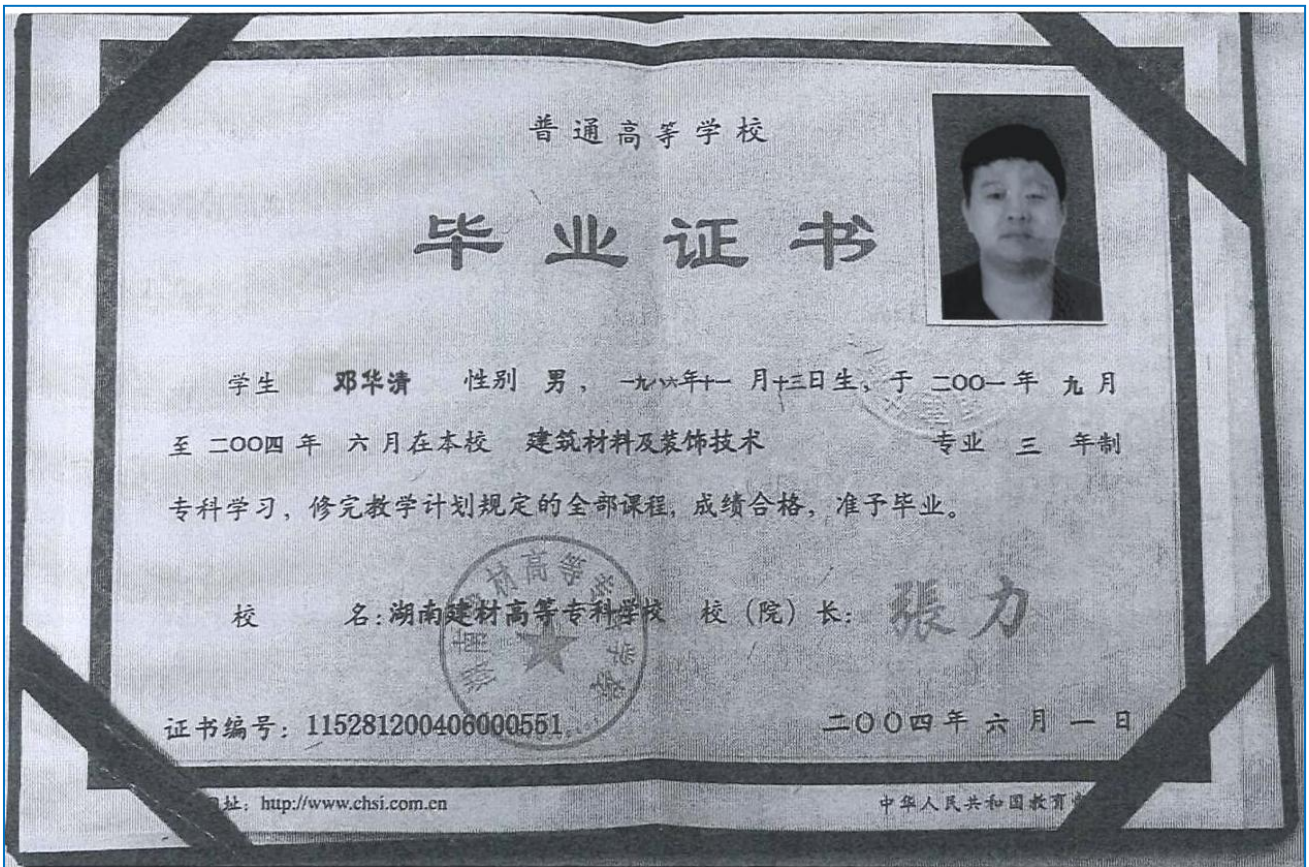 普通高等学校
毕业证书
学生 邓华清 性别 男，一九八六年十一月十三日生，于二〇〇一年 九月
至二〇〇四年 六月在本校 建筑材料及装饰技术 专业 三 年制
专科学习，修完教学计划规定的全部课程，成绩合格，准予毕业。
校 名：湖南建材高等专科学校 校（院）长：張力
湖南建材高等专科学校
证书编号：115281200406000551 二〇〇四年六月一日
址：http://www.chsi.com.cn 中华人民共和国教育